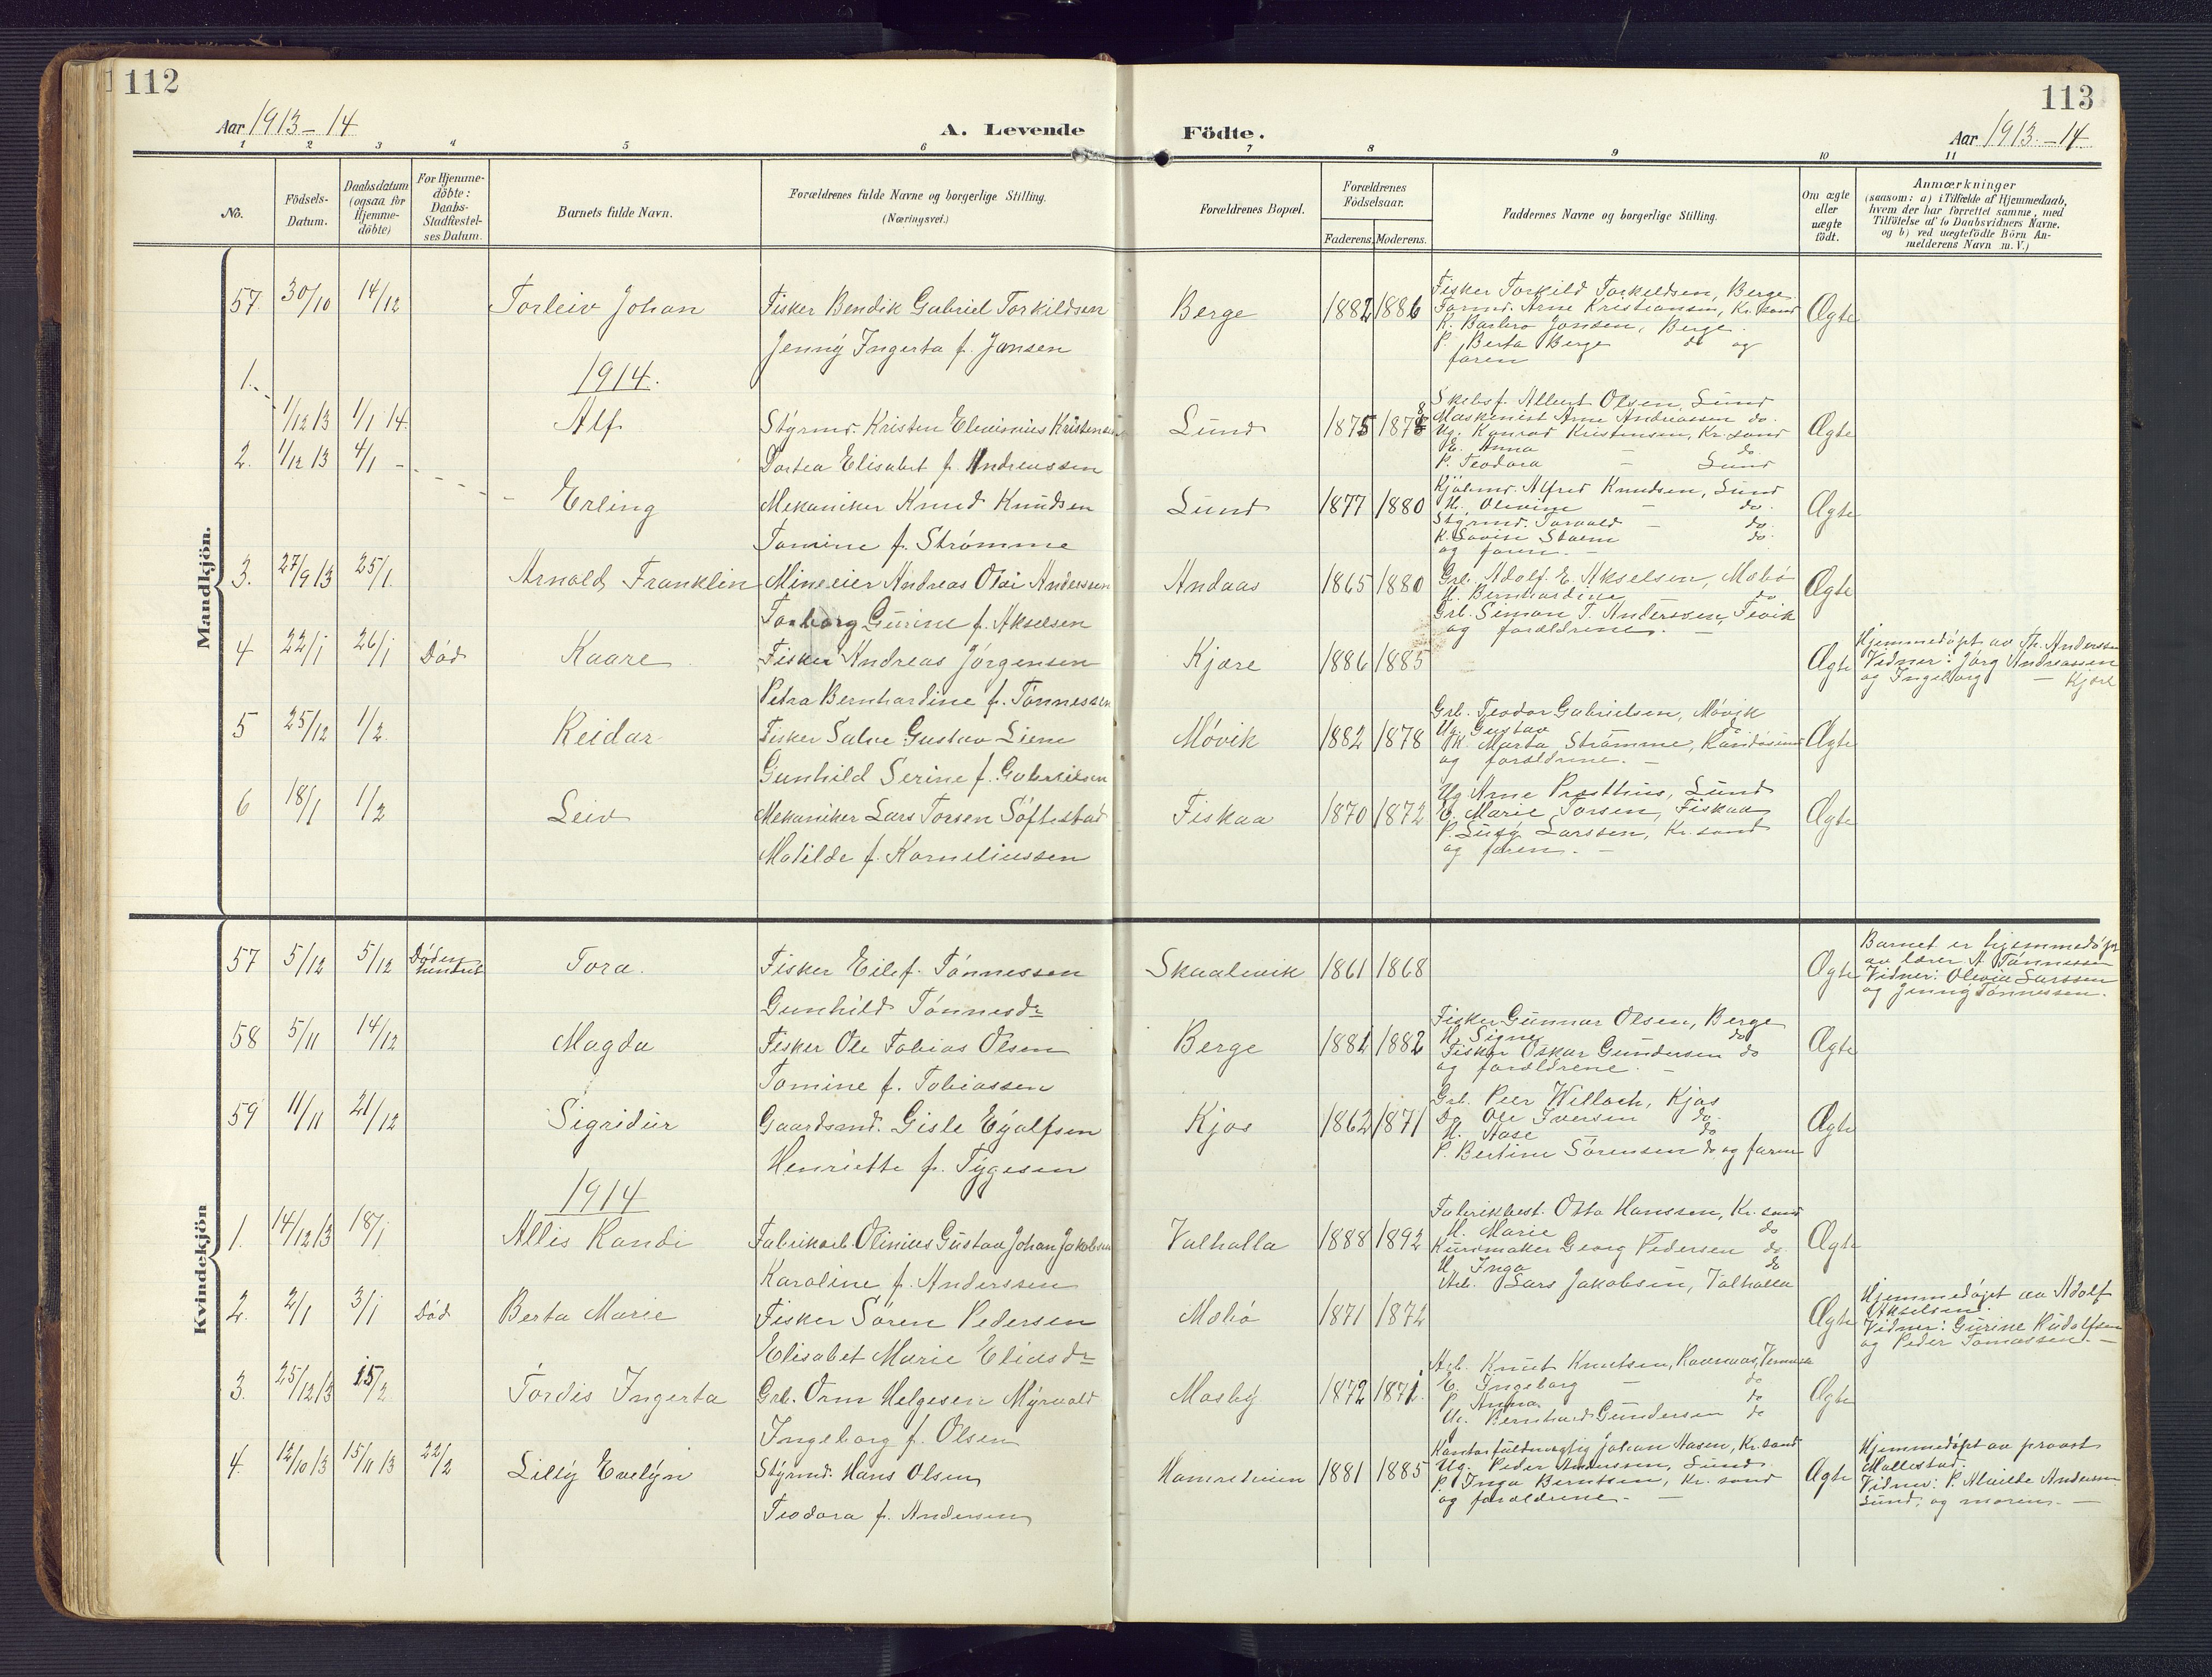 112
113
Aar 1913-14
A. Levende Födte.
Aar 1913-14
1 2 3 4 5 6 7 8 9 10 11
No.
Födsels-Datum.
Daabsdatum (ogsaa for Hjemme-döbte)
For Hjemme-döbte: Daabs-Stadfæstel-ses Datum.
Barnets fulde Navn.
Forældrenes fulde Navne og borgerlige Stilling. (Næringsvei.)
Forældrenes Bopæl.
Forældrenes Födselsaar.
Faderens. Moderens.
Faddernes Navne og borgerlige Stilling.
Om ægte eller uægte födt.
Anmærkninger
(saasom: a) i Tilfælde af Hjemmedaab, hvem der har forrettet samme, med Tilföielse af to Daabsvidners Navne, og b) ved uægtefödte Börn Anmelderens Navn m. V.)
Mandkjön.
57. 30/10 14/12 Torleiv Johan
Fisker Bendik Gabriel Torkildsen
Jenny Ingerta f. Jonsen
Berge 1882 1886
Fisker Torkild Torkildsen, Berge
Tømmd. Arne Kristiansen, Kr. sand
K. Barbro Jonsen, Berge.
P. Berta Berge do og
faren
Ægte
1914.
1. 1/12 13 1/1 14. Alf
Styrmd. Kristen Elenius Kristensen
Dortea Elisabet f. Andreassen
Lund 1875 1878
Albert Olsen, Lund
Maskinist Arne Andreassen do.
Ug. Konrad Kristensen, Kr. sand
E. Anna - do
P. Teodora - Lund
Ægte
2. 1/12 13 4/1 - Erling
Mekaniker Knud Knudsen
Tomine f. Strømme
Lund 1877 1880
Kjøbmd. Alfred Knudsen, Lund
H. Olivine - do.
Styrmd. Torvald - do.
K. Lovise Stoem do.
og faren. -
Ægte
3. 27/9 13 25/1. Arnold Franklin
Mineeier Andreas Olai Anderssen
Torborg Gurine f. Akselsen
Andaas 1865 1880
Grb. Adolf E. Akselsen, Mebø
H. Bernhardine do
Grb. Simon T. Anderssen, Tevik
og forældrene. -
Ægte
4 22/1 26/1 Død Kaare
Fisker Andreas Jørgensen
Petra Bernhardine f. Tønnessen
Kjære 1886 1885
Ægte
Hjemmedøpt av Th. Anderssen
Vidner: Jørg Andreassen
og Ingeborg - Kjære
5 25/12 1/2. Reidar
Fisker Salve Gustav Liene
Gunhild Serine f. Gabrielsen
Møvik 1882 1878
Grb. Teodor Gabrielsen, Møvik
Ug. Gustav do
K. Marta Strømme, Randøsund
og forældrene. -
Ægte
6 18/1 1/2 Leiv
Mekaniker Lars Torsen Søftestad
Matilde f. Korneliussen
Fiskaa 1870 1872
Ug. Arne Prosthus, Lund
E. Marie Torsen, Fiskaa
P. Susy Larssen, Kr. sand
og faren. -
Ægte
Kvindekjön
57 5/12 5/12 Død Tora.
Fisker Eilef Tønnessen
Gunhild Tønnesdr.
Skaalevik 1861 1868
Ægte
Barnet er hjemmedøpt
av lærer A. Tønnessen
Vidner: Olevia Larssen
og Jenny Tønnessen.
58 5/11 14/12 Magda
Fisker Ole Tobias Olsen
Tomine f. Tobiassen
Berge 1881 1882
Fisker Gunnar Olsen, Berge
H. Signe do
Fisker Oskar Gundersen do
og forældrene. -
Ægte
59 11/11 21/12 Sigridur
Gaardsmd. Gisle Eyolfsen
Henriette f. Tygesen
Kjos 1862 1871
Grb. Peer Willoch, Kjos
Do Ole Iversen do.
H. Aase do
P. Bertine Sørensen do og faren
Ægte
1914
1. 14/12 13 18/1 Allis Randi
Fabrikarb. Olinius Gustav Johan Jakobsen
Karoline f. Anderssen
Valhalla 1888 1892
Fabrikbest. Otto Hanssen, Kr. sand
H. Marie do
Kurvmaker Georg Pedersen do.
H. Inga do
Arb. Lars Jakobsen, Valhalla
Ægte
2. 2/1 3/1 Død Berta Marie
Fisker Søren Pedersen
Elisabet Marie Eliasdr.
Mebø 1871 1872
Ægte
Hjemmedøpt av Adolf
Akselsen.
Vidner: Gurine Rudolfsen
og Peder Tomassen. -
3. 25/12 13 15/2 Tordis Ingerta
Grb. Orm Helgesen Myrvold
Ingeborg f. Olsen
Mosby 1872 1871.
Arb. Knut Knutsen, Ravnaas,
E. Ingeborg - do
P. Anna do
Ug. Bernhard Gundersen do
Ægte
4. 12/10 13 15/11 13 22/2 Lilly Evelyn
Styrmd. Hans Olsen
Teodora f. Andersen
Hamreheien 1881 1885
Kontorfuldmægtig Johan Aasen, Kr. sand
Ug. Peder Anderssen, Lund.
P. Inga Berntsen, Kr. sand
og forældrene. -
Ægte
Hjemmedøpt av provst
Mallestad.
Vidner: P. Alvilde Anderssen
Lund, og moren. -